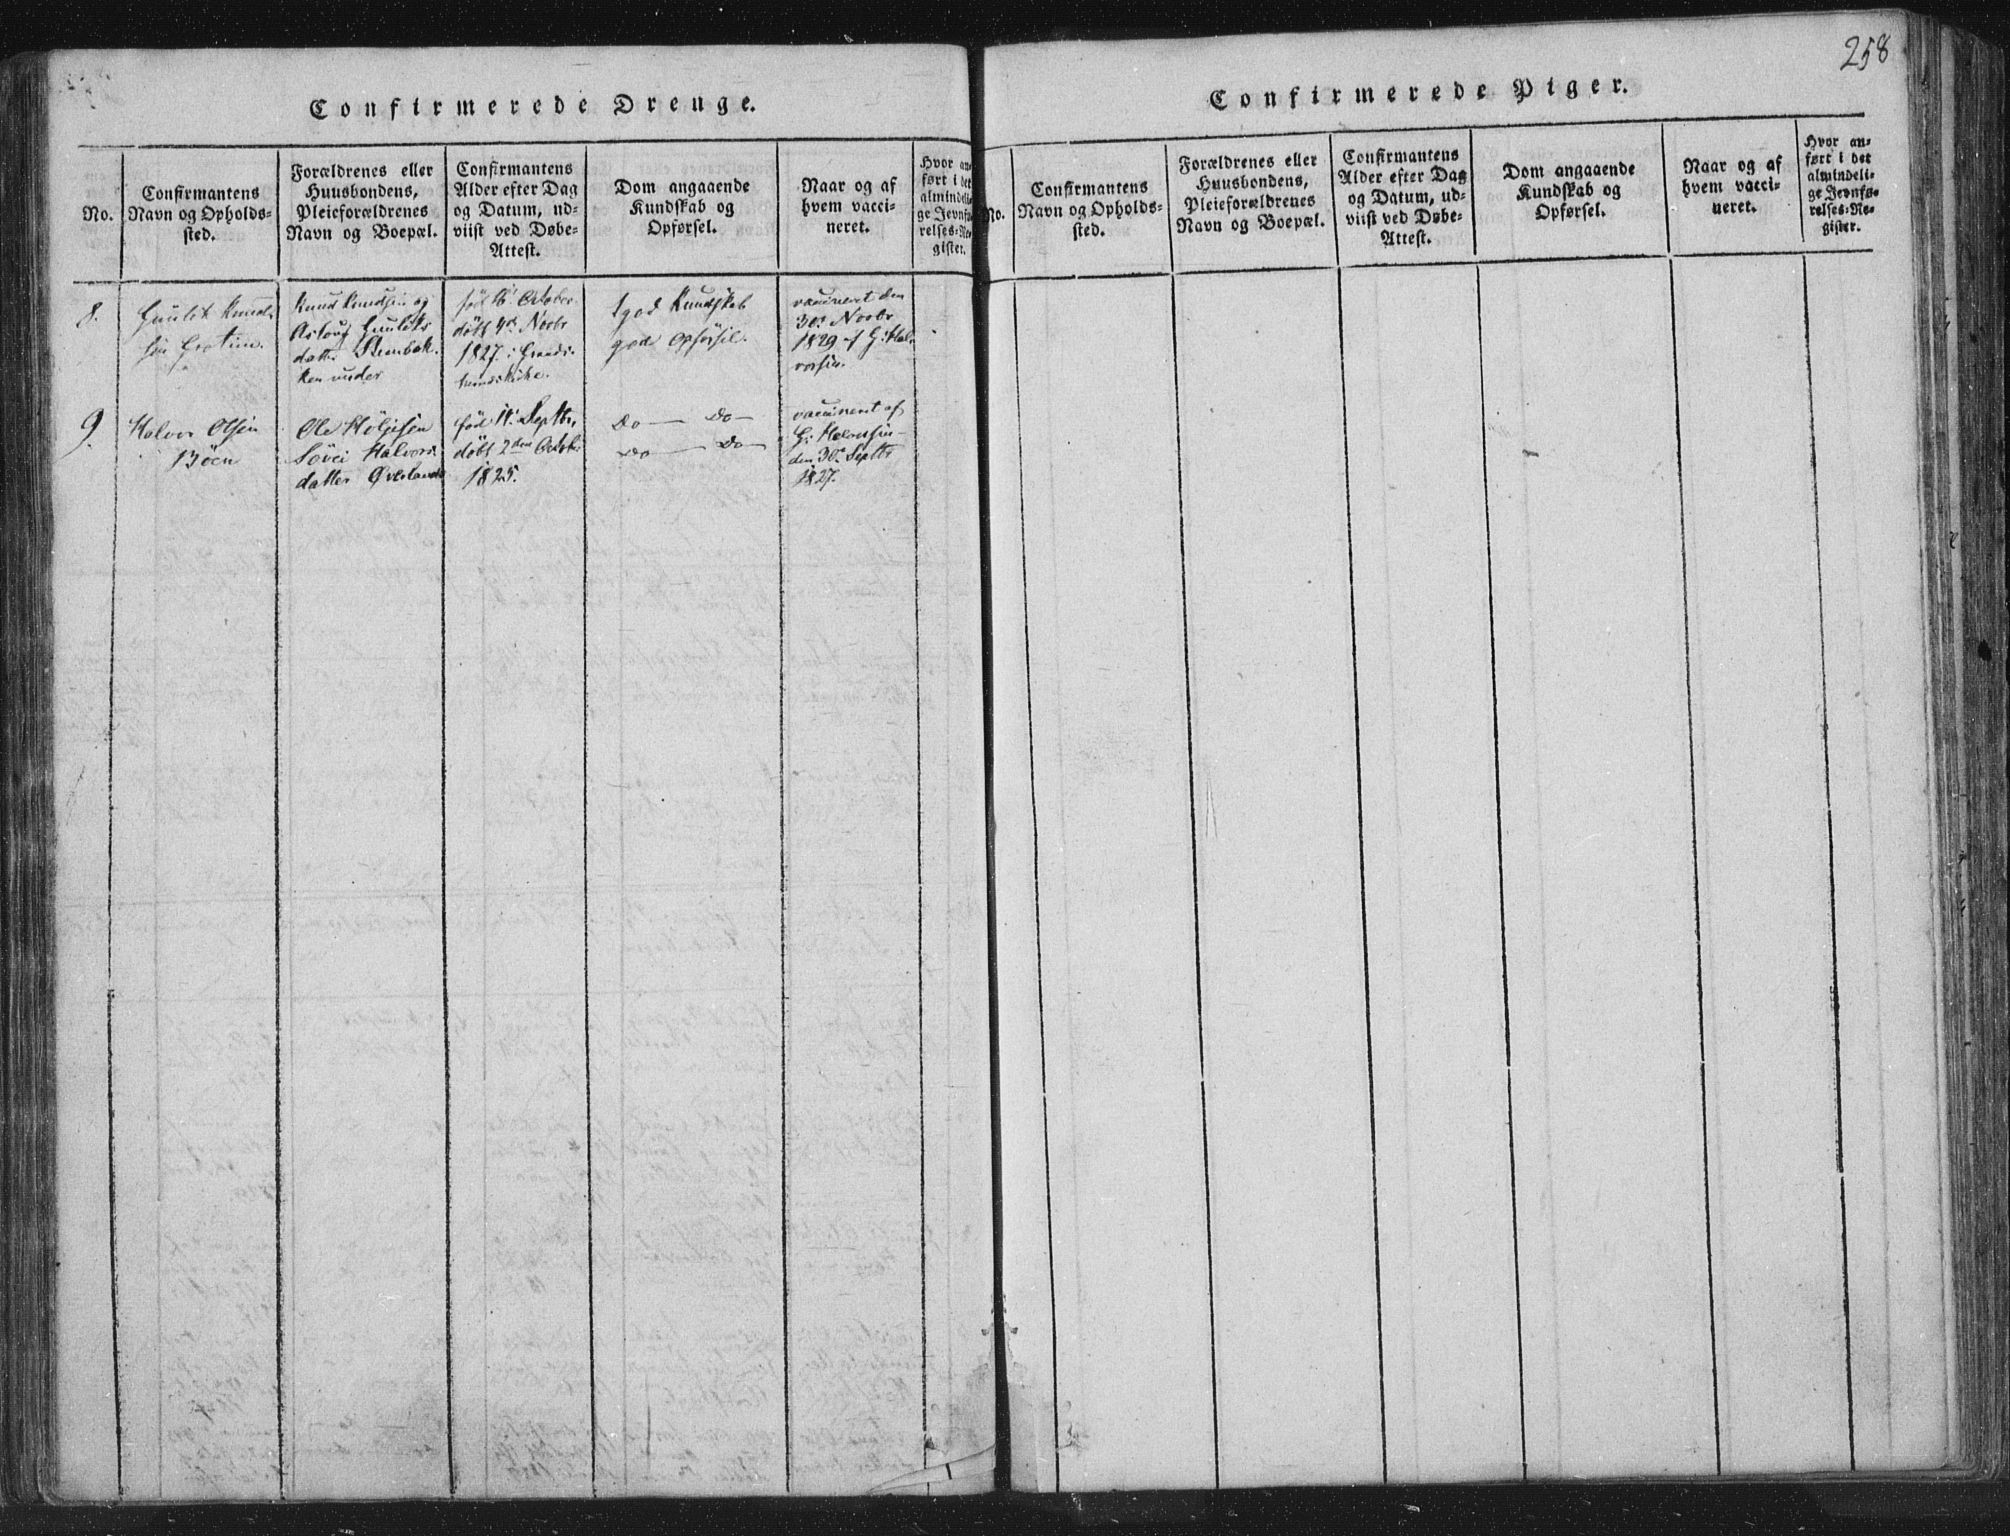 258
Confirmerede Drenge.
No.
Confirmantens
Navn og Opholds-
sted.
Forældrenes eller
Huusbondens,
Pleieforældrenes
Navn og Boepæl.
Confirmantens
Alder efter Dag
og Datum, ud-
viist ved Døbe-
Attest.
Dom angaaende
Kundskab og
Opførsel.
Naar og af
hvem vacci-
neret.
Hvor an-
ført i det
almindeli-
ge Jevnfø-
relses-Re-
gister.
8.
Gunlek Knud-
sen
Knud Knudsen og
Asloug Gunleks
datter
født 16de October
døbt 4de Novbr
1827 i
god Kundskab
god Opførsel.
vaccineret den
30te Novbr
1829 af G. Hal-
vorsen.
9.
Halvor Olsen
Bøen
Ole
Halvors
datter Øverland
født 11te Septbr,
døbt 2den October
1825.
Do — Do —
Do — Do —
vaccineret af
G. Halvorsen
den 30te Septbr
1827.
Confirmerede Piger.
No.
Confirmantens
Navn og Opholds-
sted.
Forældrenes eller
Huusbondens,
Pleieforældrenes
Navn og Boepæl.
Confirmantens
Alder efter Dag
og Datum, ud-
viist ved Døbe-
Attest.
Dom angaaende
Kundskab og
Opførsel.
Naar og af
hvem vacci-
neret.
Hvor an-
ført i det
almindeli-
ge Jevnfø-
relses-Re-
gister.